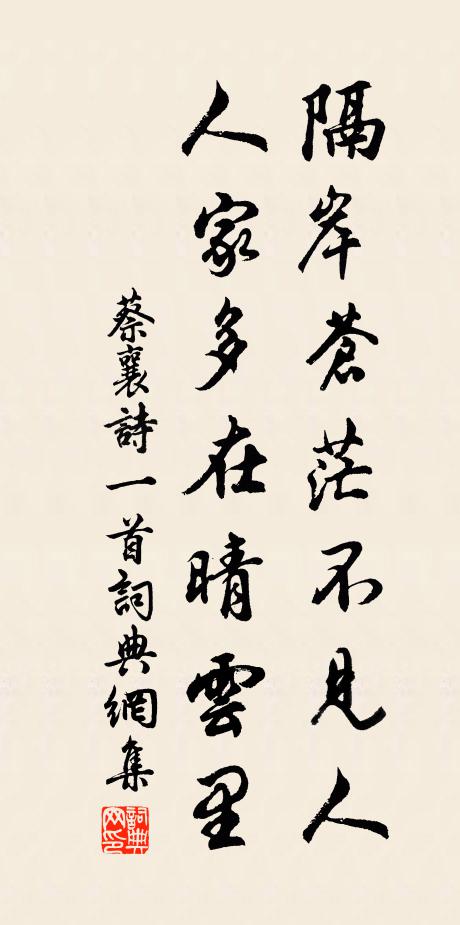 隔岸蒼茫不見人
人家多在晴雲里
蔡襄詩一首詞典網集
詞典网印